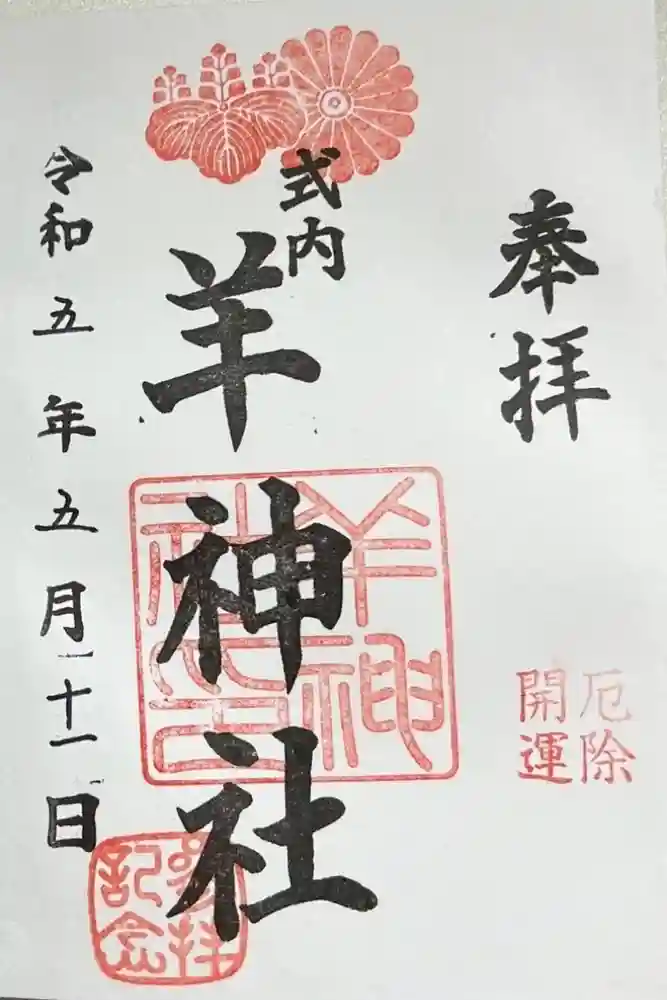 奉拝
厄除
開運
式内
羊神社
羊神社之印
参拝
記念
令和五年五月二十一日